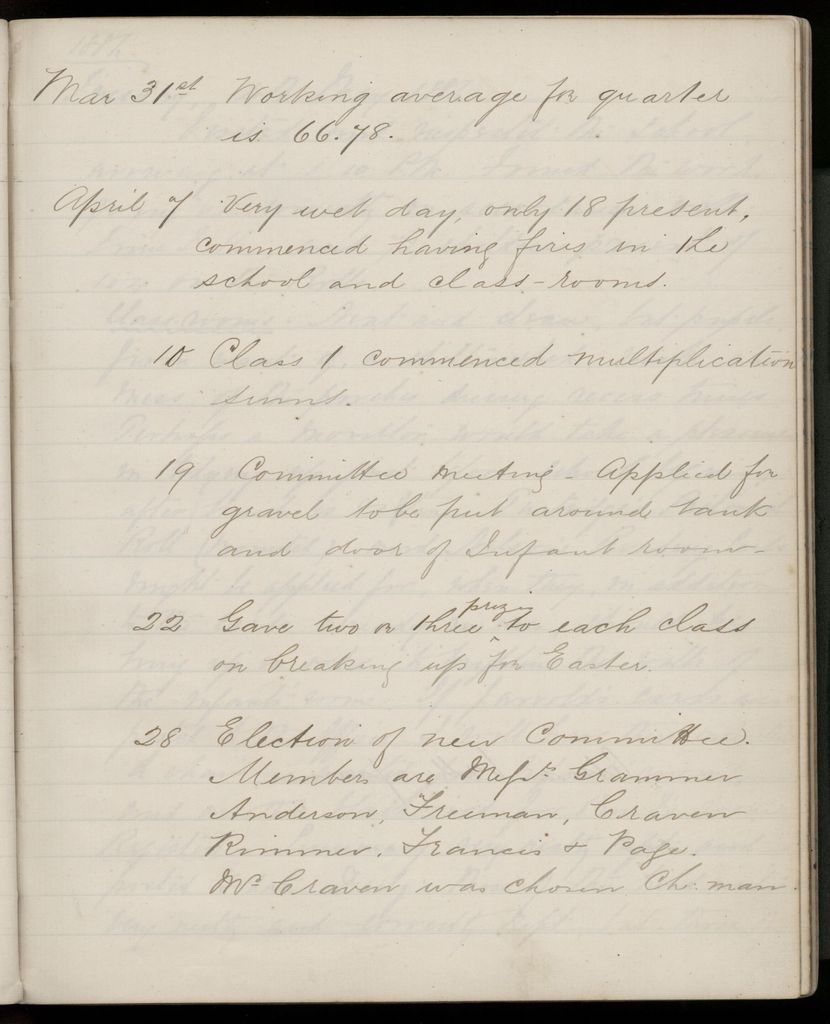 Mar 31st Working average for quarter
is 66.78.
April 7 Very wet day, only 18 present,
commenced having fires in the
school and class-rooms.
10 Class 1 commenced multiplication
sums.
19 Committee meeting - Applied for
gravel to be put around tank
and door of Infant room -
22 Gave two or three prizes to each class
on breaking up for Easter.
28 Election of new Committee.
Members are Messrs Grammer
Anderson, Freeman, Craven
Rimmer, Francis & Page.
Mr Craven was chosen Ch: man.